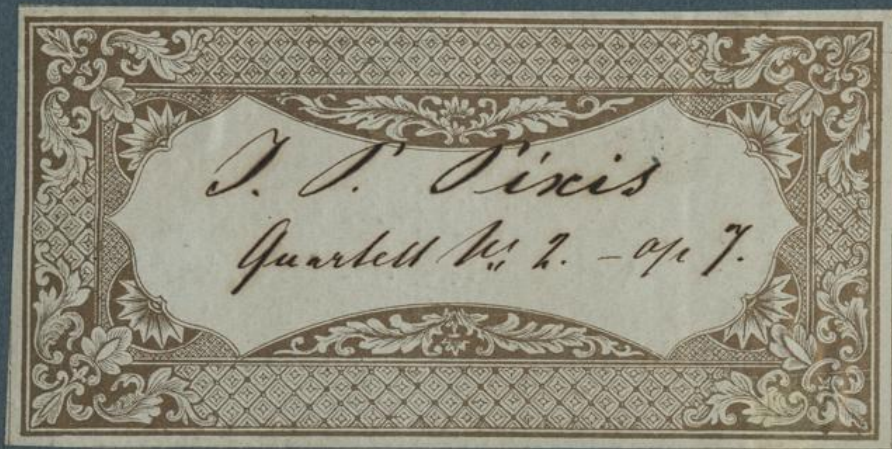 J. P. Pixis
Quartett No 2. - op 7.